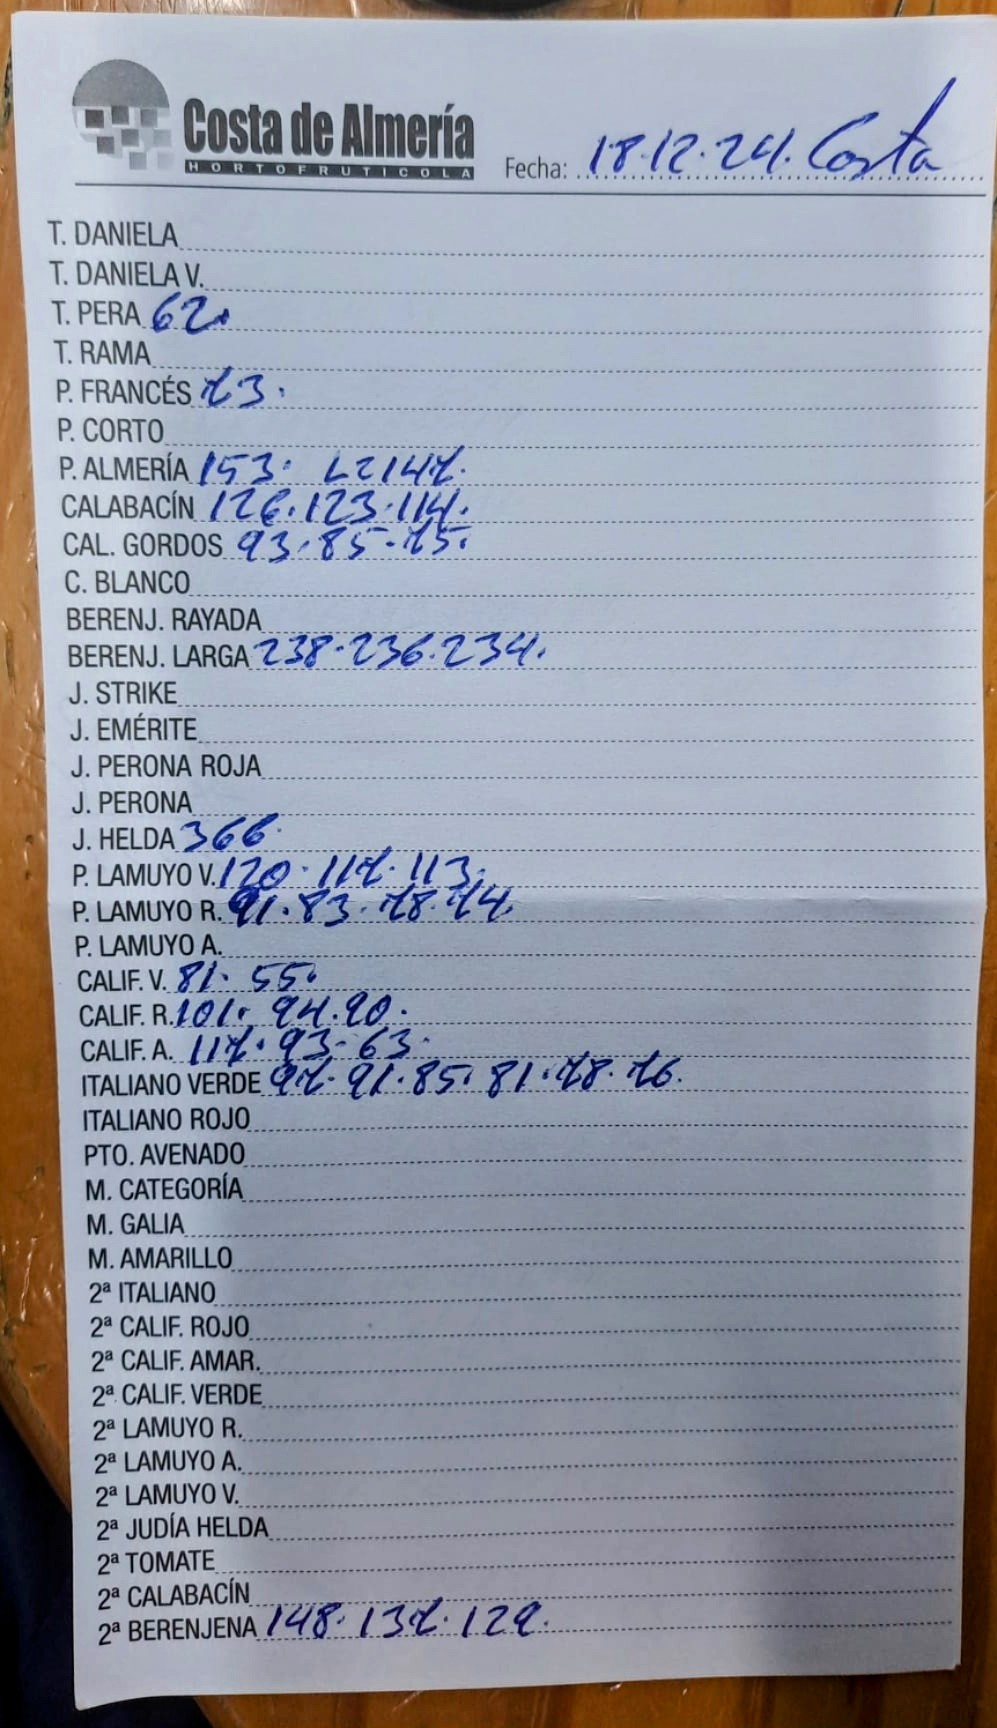 Costa de Almería
HORTOFRUTICOLA
Fecha: 18.12.24. Costa
T. DANIELA
T. DANIELA V.
T. PERA 62.
T. RAMA
P. FRANCÉS 73.
P. CORTO
P. ALMERÍA 153. LZ147.
CALABACÍN 126.123.114.
CAL. GORDOS 93.85.75.
C. BLANCO
BERENJ. RAYADA
BERENJ. LARGA 238.236.234.
J. STRIKE
J. EMÉRITE
J. PERONA ROJA
J. PERONA
J. HELDA 366.
P. LAMUYO V. 120.117.113.
P. LAMUYO R. 91.83.78.74.
P. LAMUYO A.
CALIF. V. 81. 55.
CALIF. R. 101. 94.90.
CALIF. A. 117. 93. 63.
ITALIANO VERDE 97.91.85.81.78.76.
ITALIANO ROJO
PTO. AVENADO
M. CATEGORÍA
M. GALIA
M. AMARILLO
2ª ITALIANO
2ª CALIF. ROJO
2ª CALIF. AMAR.
2ª CALIF. VERDE
2ª LAMUYO R.
2ª LAMUYO A.
2ª LAMUYO V.
2ª JUDÍA HELDA
2ª TOMATE
2ª CALABACÍN
2ª BERENJENA 148.137.129.